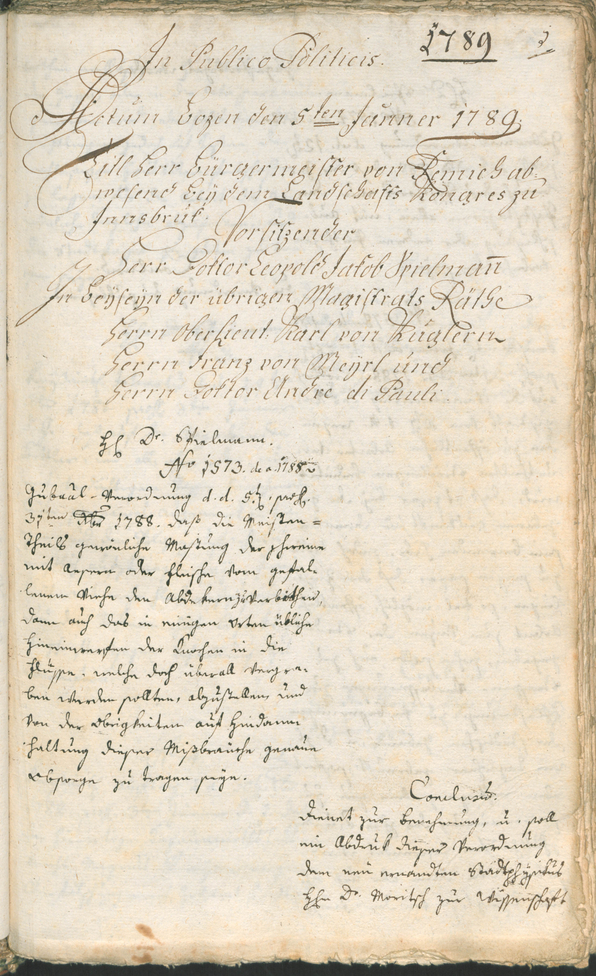 1789
1
In Publico Politicis.
Actum Bozen den 5ten Jänner 1789.
Titl Herr Bürgermeister von Remich ab-
wesend bey dem Landschafts Kongres zu
Innsbruk
Vorsitzender
Herr Doktor Leopold Jakob Spielmañ
In beyseyn der übrigen Magistrats Räthe
Herrn Oberlieut. Karl von Kuglern
Herrn Franz von Meyrl und
Herrn Doktor Andre di Pauli
H. Dr. Spielmann.
No 1573. de a. 1788
Gubeal-Verordnung d. d.
31ten 1788. daß die meisten-
theils gewönliche Mastung der Schweine
mit Aesern oder Fleische vom gefal-
lenem Viehe den Abdekern zu verbiethen,
dann auch das in einigen Orten übliche
Hineinwerfen der Knochen in die
Flüsse, welche doch überall vergra-
ben werden sollten, abzustellen, und
von der Obrigkeiten auf Hindann-
haltung dieser Mißbrauche genaue
Obsorge zu tragen seye.
Conclusum.
Dienet zur Benehmung, u. soll
ein Abdruk dieser Verordnung
dem neu ernandten Stadtphysikus
Hn Dr. Moritsch zur Wissenschaft